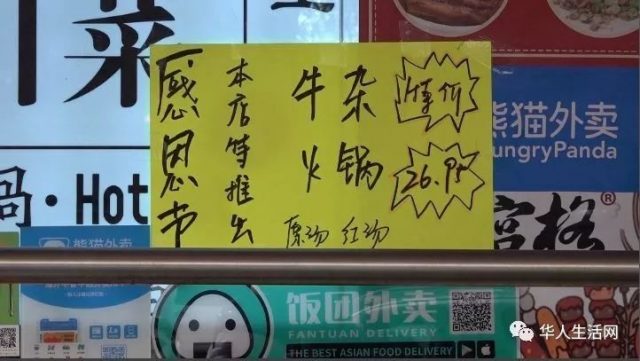 菜
感恩节
本店特推出
牛杂
火锅
原汤 红汤
26.95
熊猫外卖
ungryPanda
鍋·Hot
宫格
熊猫外卖
饭团外卖
FANTUAN DELIVERY
THE BEST ASIAN FOOD DELIVERY
华人生活网